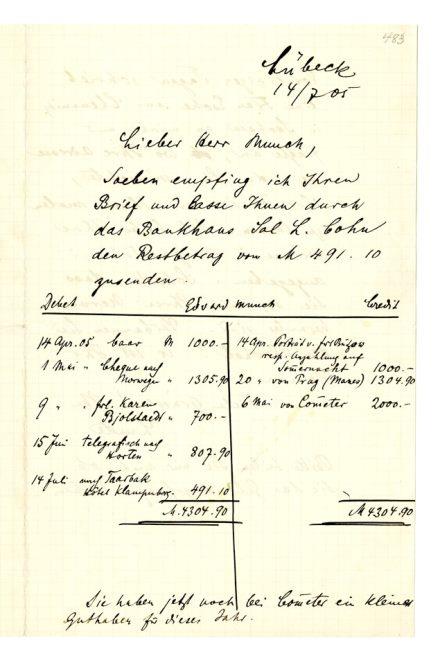 483
Lübeck
14/7 05
Lieber Herr Munch,
Soeben empfing ich Ihren
Brief und lasse Ihnen durch
das Bankhaus Sal L. Cohn
den Restbetrag von M 491.10
zusenden.
Debet Edvard Munch Credit
14 Apr. 05 baar M 1000.-
1 Mai " Cheque nach
Norwegen " 1305.90
9 " " frl. Karen
Bjölstadt " 700.-
15 Juni telegrafisch nach
Horten " 807.90
14 Juli nach Taarbæk
Hôtel Klampenborg. 491.10
M. 4304.90
14 Apr. Porträt v. frl.
resp. Anzahlung auf
Sommernacht 1000.-
20 " von Prag (Manes) 1304.90
6 Mai von Cometer 2000.-
M 4304.90
Sie haben jetzt noch bei Cometer ein kleines
Guthaben für dieses Jahr.